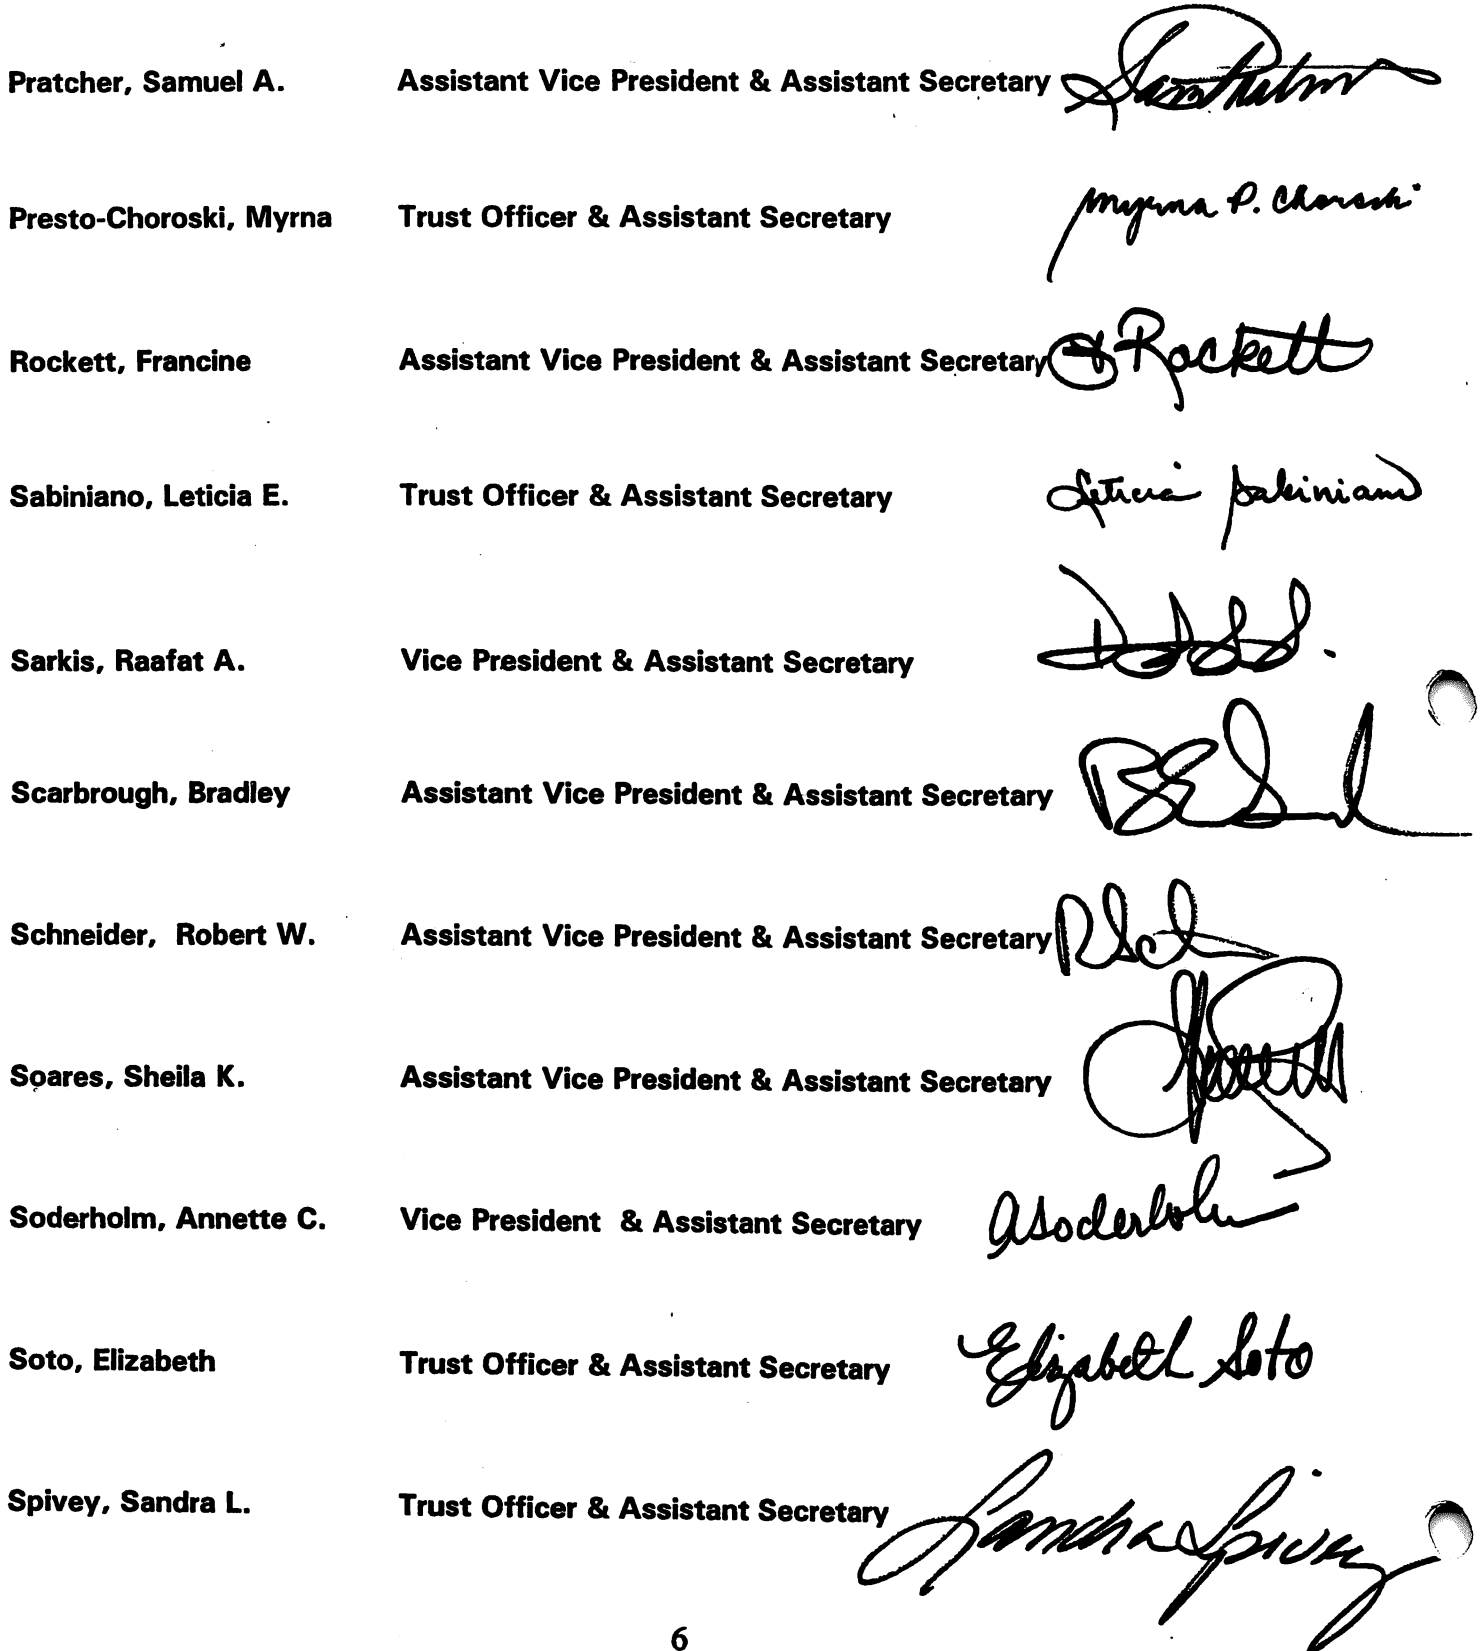 Pratcher, Samuel A. Assistant Vice President & Assistant Secretary
Presto-Choroski, Myrna Trust Officer & Assistant Secretary Myrna P. Choroski
Rockett, Francine Assistant Vice President & Assistant Secretary F Rockett
Sabiniano, Leticia E. Trust Officer & Assistant Secretary Leticia Sabiniano
Sarkis, Raafat A. Vice President & Assistant Secretary
Scarbrough, Bradley Assistant Vice President & Assistant Secretary
Schneider, Robert W. Assistant Vice President & Assistant Secretary
Soares, Sheila K. Assistant Vice President & Assistant Secretary
Soderholm, Annette C. Vice President & Assistant Secretary ASoderholm
Soto, Elizabeth Trust Officer & Assistant Secretary Elizabeth Soto
Spivey, Sandra L. Trust Officer & Assistant Secretary Sandra Spivey
6